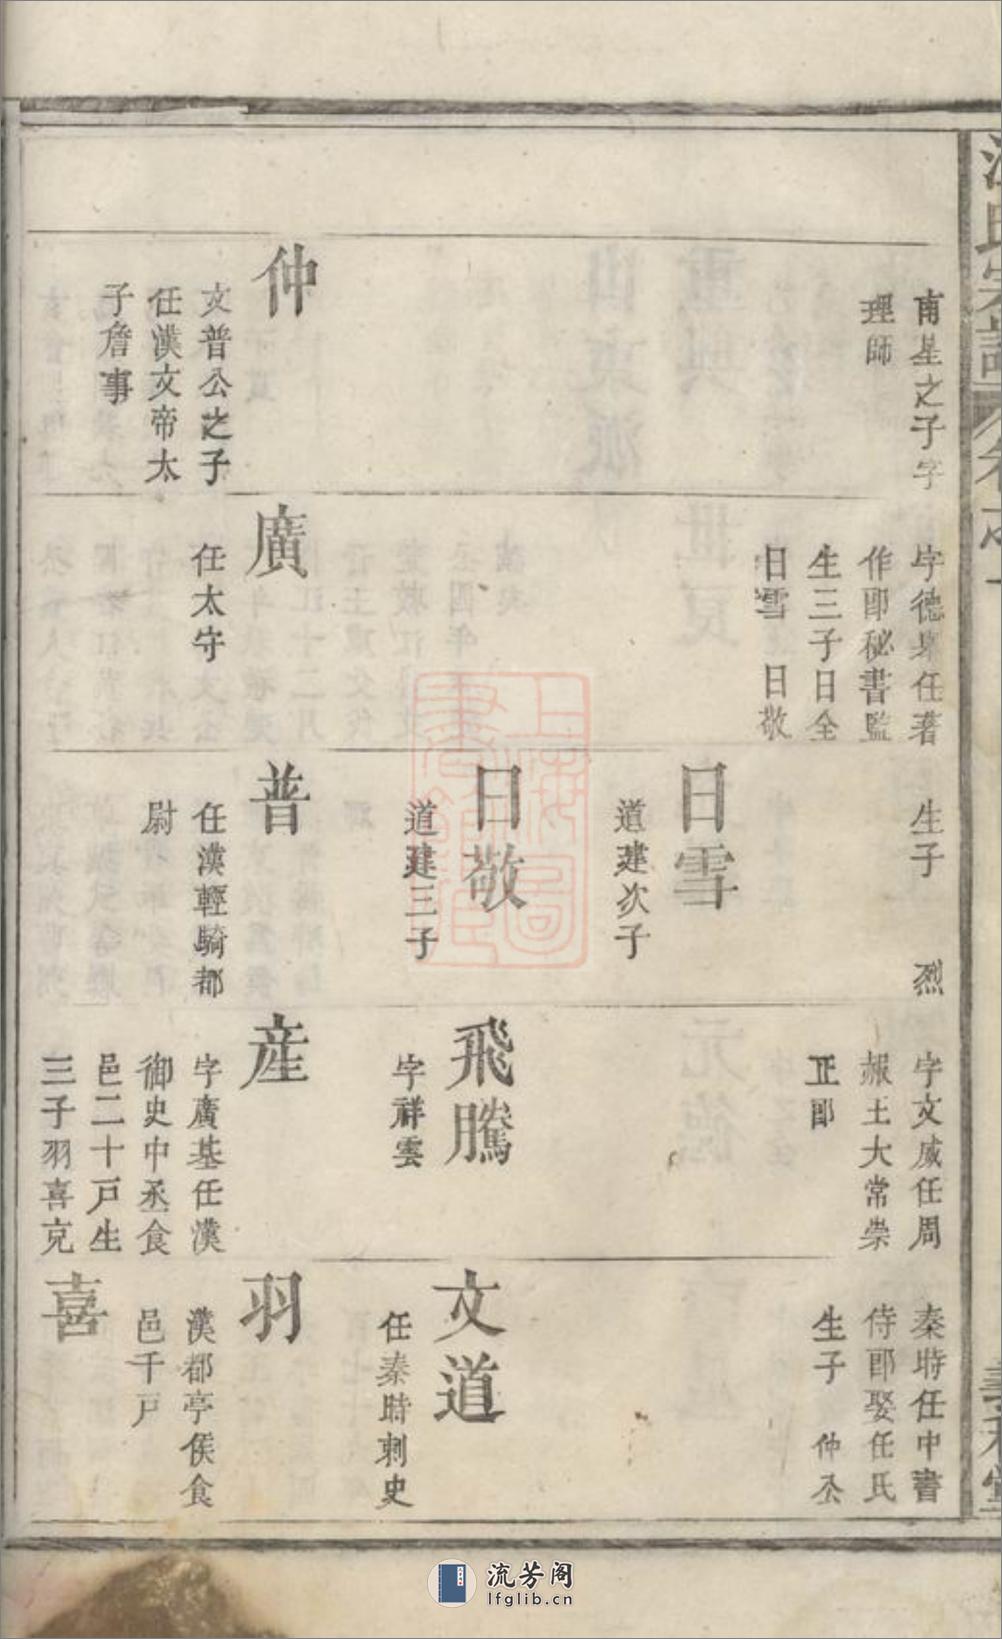 南星之子字
理師
字德昇任著
作郎秘書監
生三子日全
日雪　日敬
生子　烈
字文威任周
赧王大常崇
正郎
秦時任中書
侍郎娶任氏
生子　仲仝
日雪
道建次子
日敬
道建三子
飛騰
字祥雲
文道
任秦時刺史
仲
文普公之子
任漢文帝太
子詹事
廣
任太守
普
任漢輕騎都
尉
産
字廣基任漢
御史中丞食
邑二十戸生
三子羽喜克
羽
漢都亭侯食
邑千戸
喜
上海圖
書館藏
流芳阁
lfglib.cn